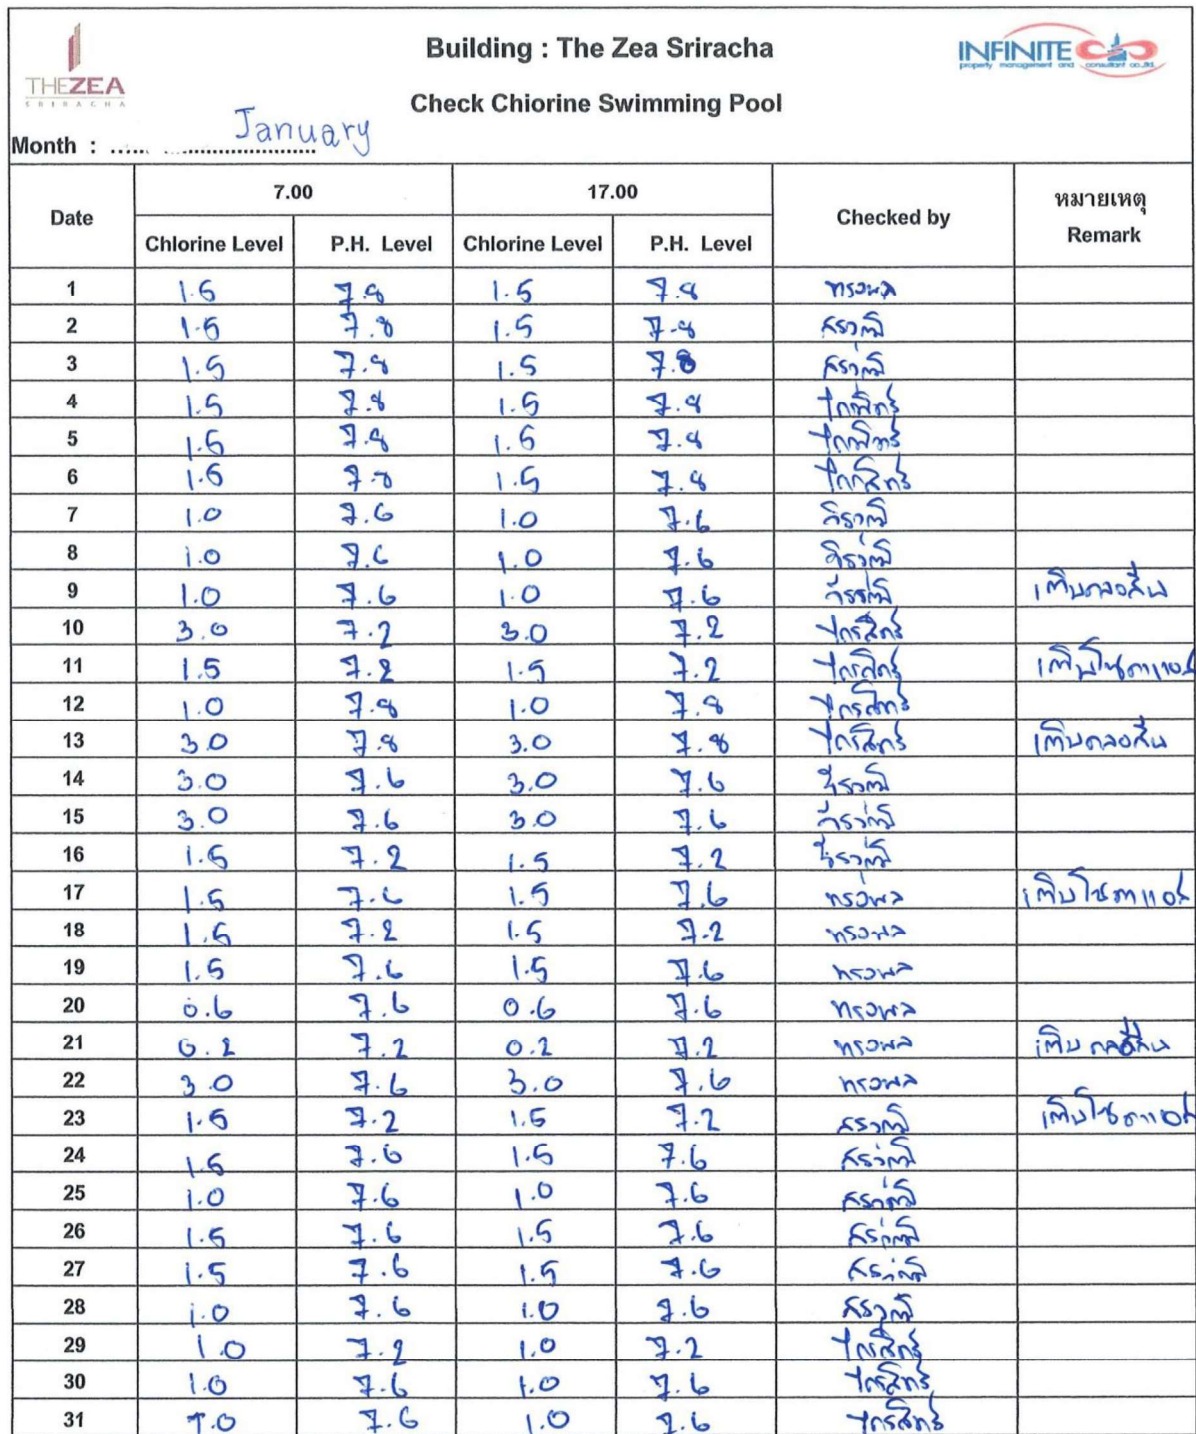 THE ZEA
SRIRACHA
Building : The Zea Sriracha
INFINITE
property management and consultant co.,ltd.
Check Chiorine Swimming Pool
Month : January
Date 7.00 17.00 Checked by หมายเหตุ
Remark
Chlorine Level P.H. Level Chlorine Level P.H. Level
1 1.5 7.8 1.5 7.8 ทรงพล
2 1.5 7.8 1.5 7.8 สราวุฒิ
3 1.5 7.8 1.5 7.8 สราวุฒิ
4 1.5 7.8 1.5 7.8 ไกรสิทธิ์
5 1.5 7.8 1.5 7.8 ไกรสิทธิ์
6 1.5 7.8 1.5 7.8 ไกรสิทธิ์
7 1.0 7.6 1.0 7.6
8 1.0 7.6 1.0 7.6
9 1.0 7.6 1.0 7.6 เติมคลอรีน
10 3.0 7.2 3.0 7.2 ไกรสิทธิ์
11 1.5 7.2 1.5 7.2 ไกรสิทธิ์ เติมโซดาแอช
12 1.0 7.8 1.0 7.8 ไกรสิทธิ์
13 3.0 7.8 3.0 7.8 ไกรสิทธิ์ เติมคลอรีน
14 3.0 7.6 3.0 7.6
15 3.0 7.6 3.0 7.6
16 1.5 7.2 1.5 7.2
17 1.5 7.6 1.5 7.6 ทรงพล เติมโซดาแอช
18 1.5 7.2 1.5 7.2 ทรงพล
19 1.5 7.6 1.5 7.6 ทรงพล
20 0.6 7.6 0.6 7.6 ทรงพล
21 0.2 7.2 0.2 7.2 ทรงพล เติมคลอรีน
22 3.0 7.6 3.0 7.6 ทรงพล
23 1.5 7.2 1.5 7.2 สราวุฒิ เติมโซดาแอช
24 1.5 7.6 1.5 7.6 สราวุฒิ
25 1.0 7.6 1.0 7.6 สราวุฒิ
26 1.5 7.6 1.5 7.6 สราวุฒิ
27 1.5 7.6 1.5 7.6 สราวุฒิ
28 1.0 7.6 1.0 7.6 สราวุฒิ
29 1.0 7.2 1.0 7.2 ไกรสิทธิ์
30 1.0 7.6 1.0 7.6 ไกรสิทธิ์
31 1.0 7.6 1.0 7.6 ไกรสิทธิ์